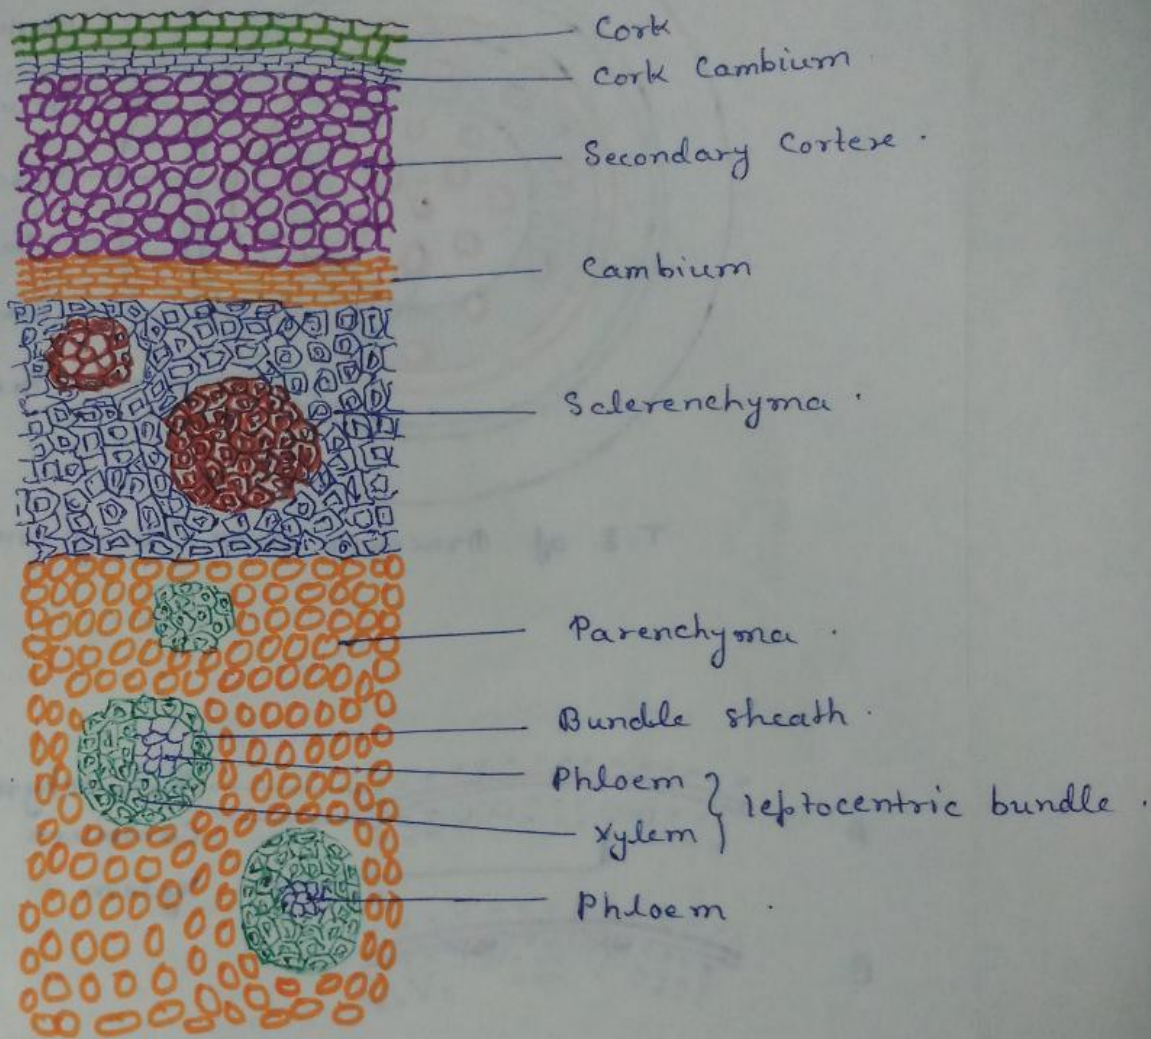 Cork
Cork Cambium
Secondary Cortex
Cambium
Sclerenchyma
Parenchyma
Bundle sheath
Phloem
Xylem
leptocentric bundle
Phloem
T.S of